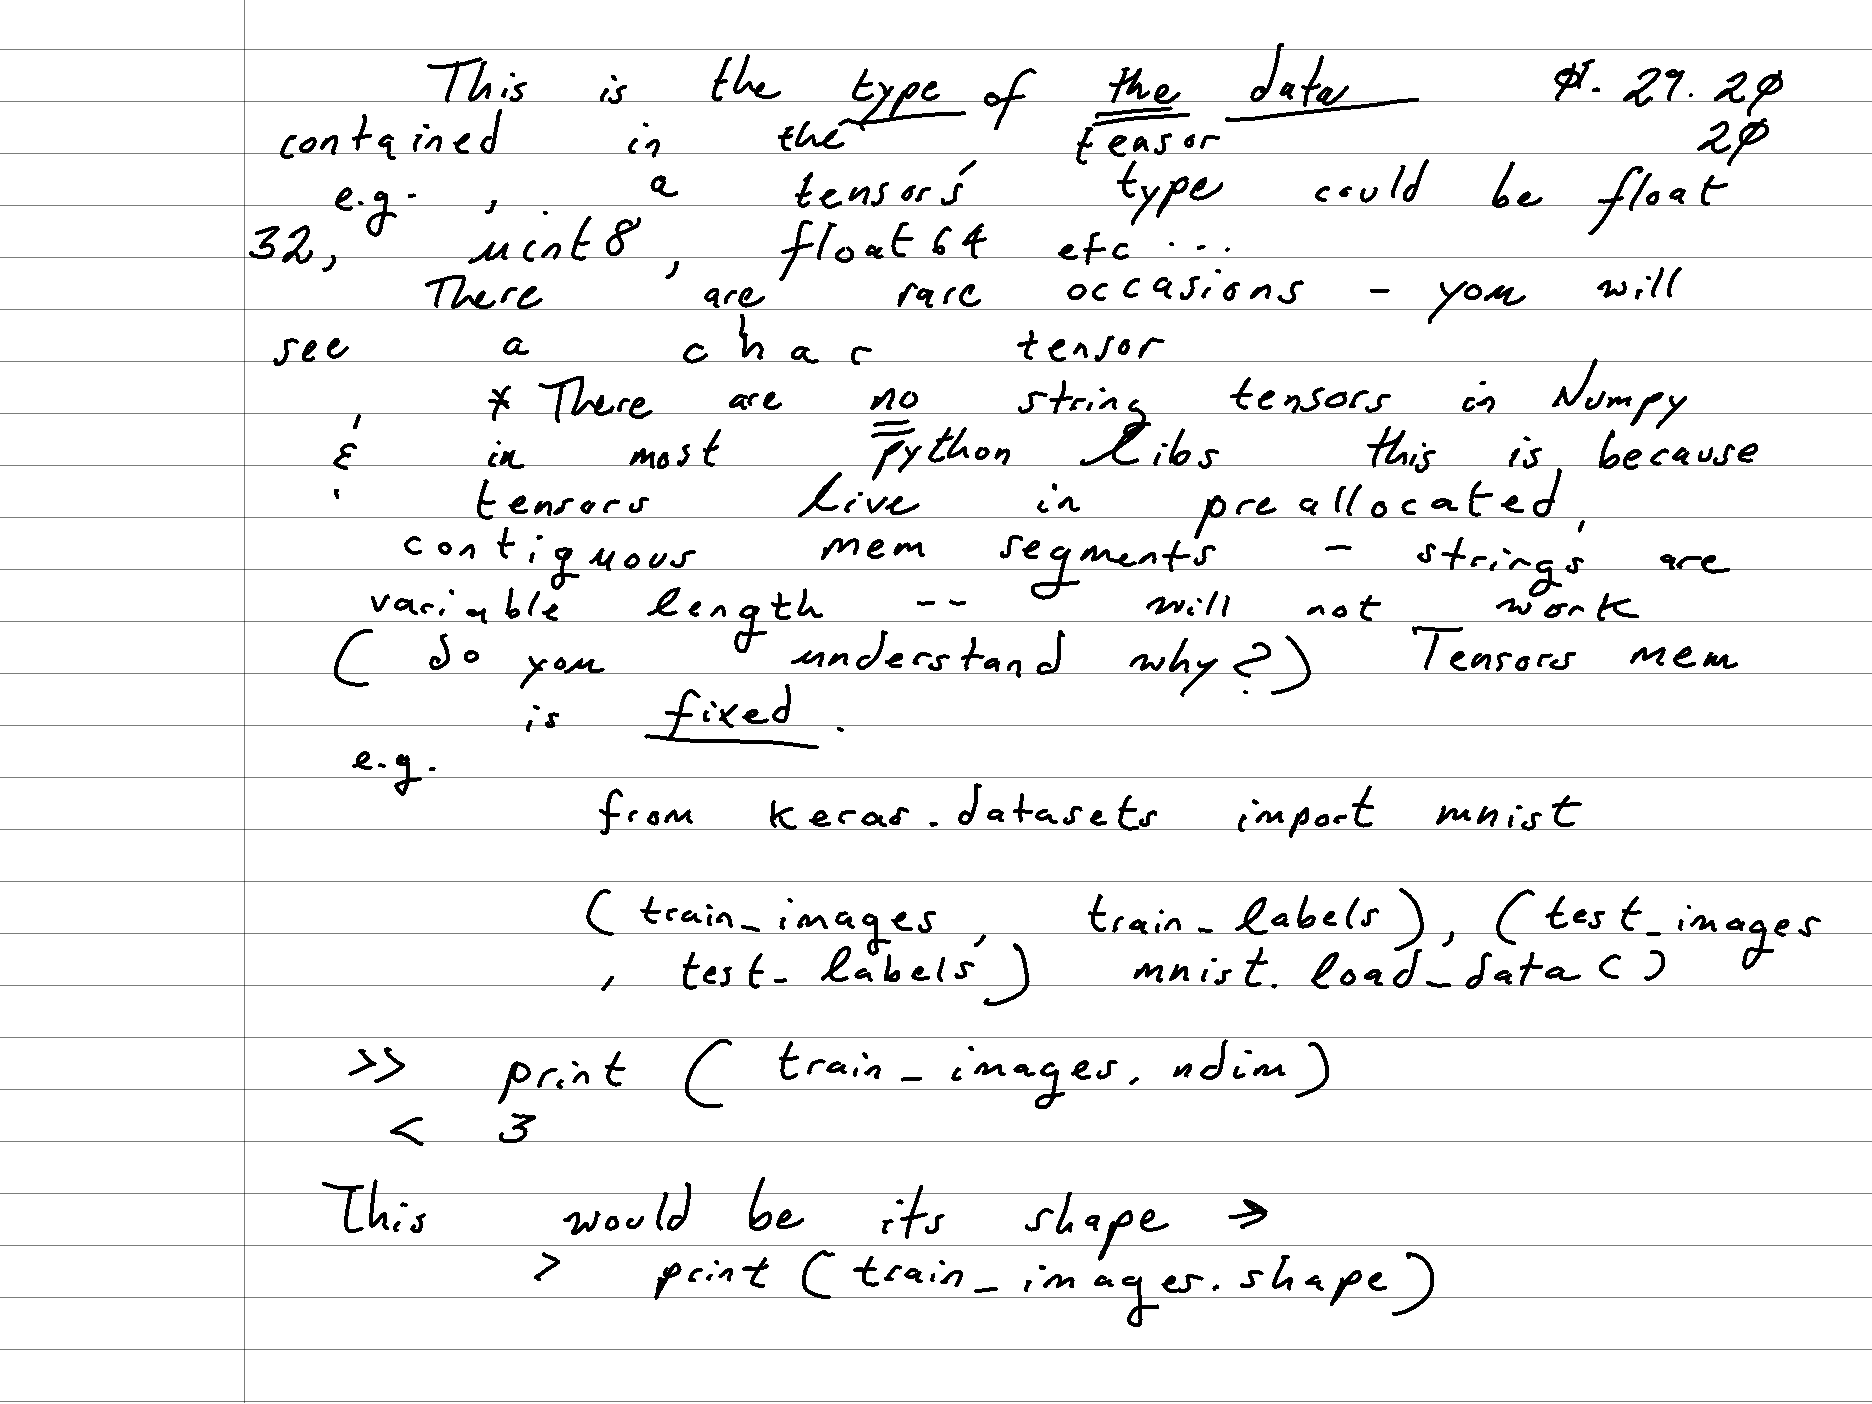 This is the type of the data 01.29.20
contained in the tensor 20
e.g., a tensor's type could be float
32, uint8, float64 etc...
There are rare occasions - you will
see a char tensor
* There are no string tensors in Numpy
& in most python libs this is because
tensors live in preallocated,
contiguous mem segments - strings are
variable length -- will not work
( do you understand why?) Tensors mem
is fixed.
e.g.
from keras.datasets import mnist
(train_images, train_labels), (test_images
, test_labels) mnist.load_data()
>> print (train_images.ndim)
< 3
This would be its shape →
> print (train_images.shape)